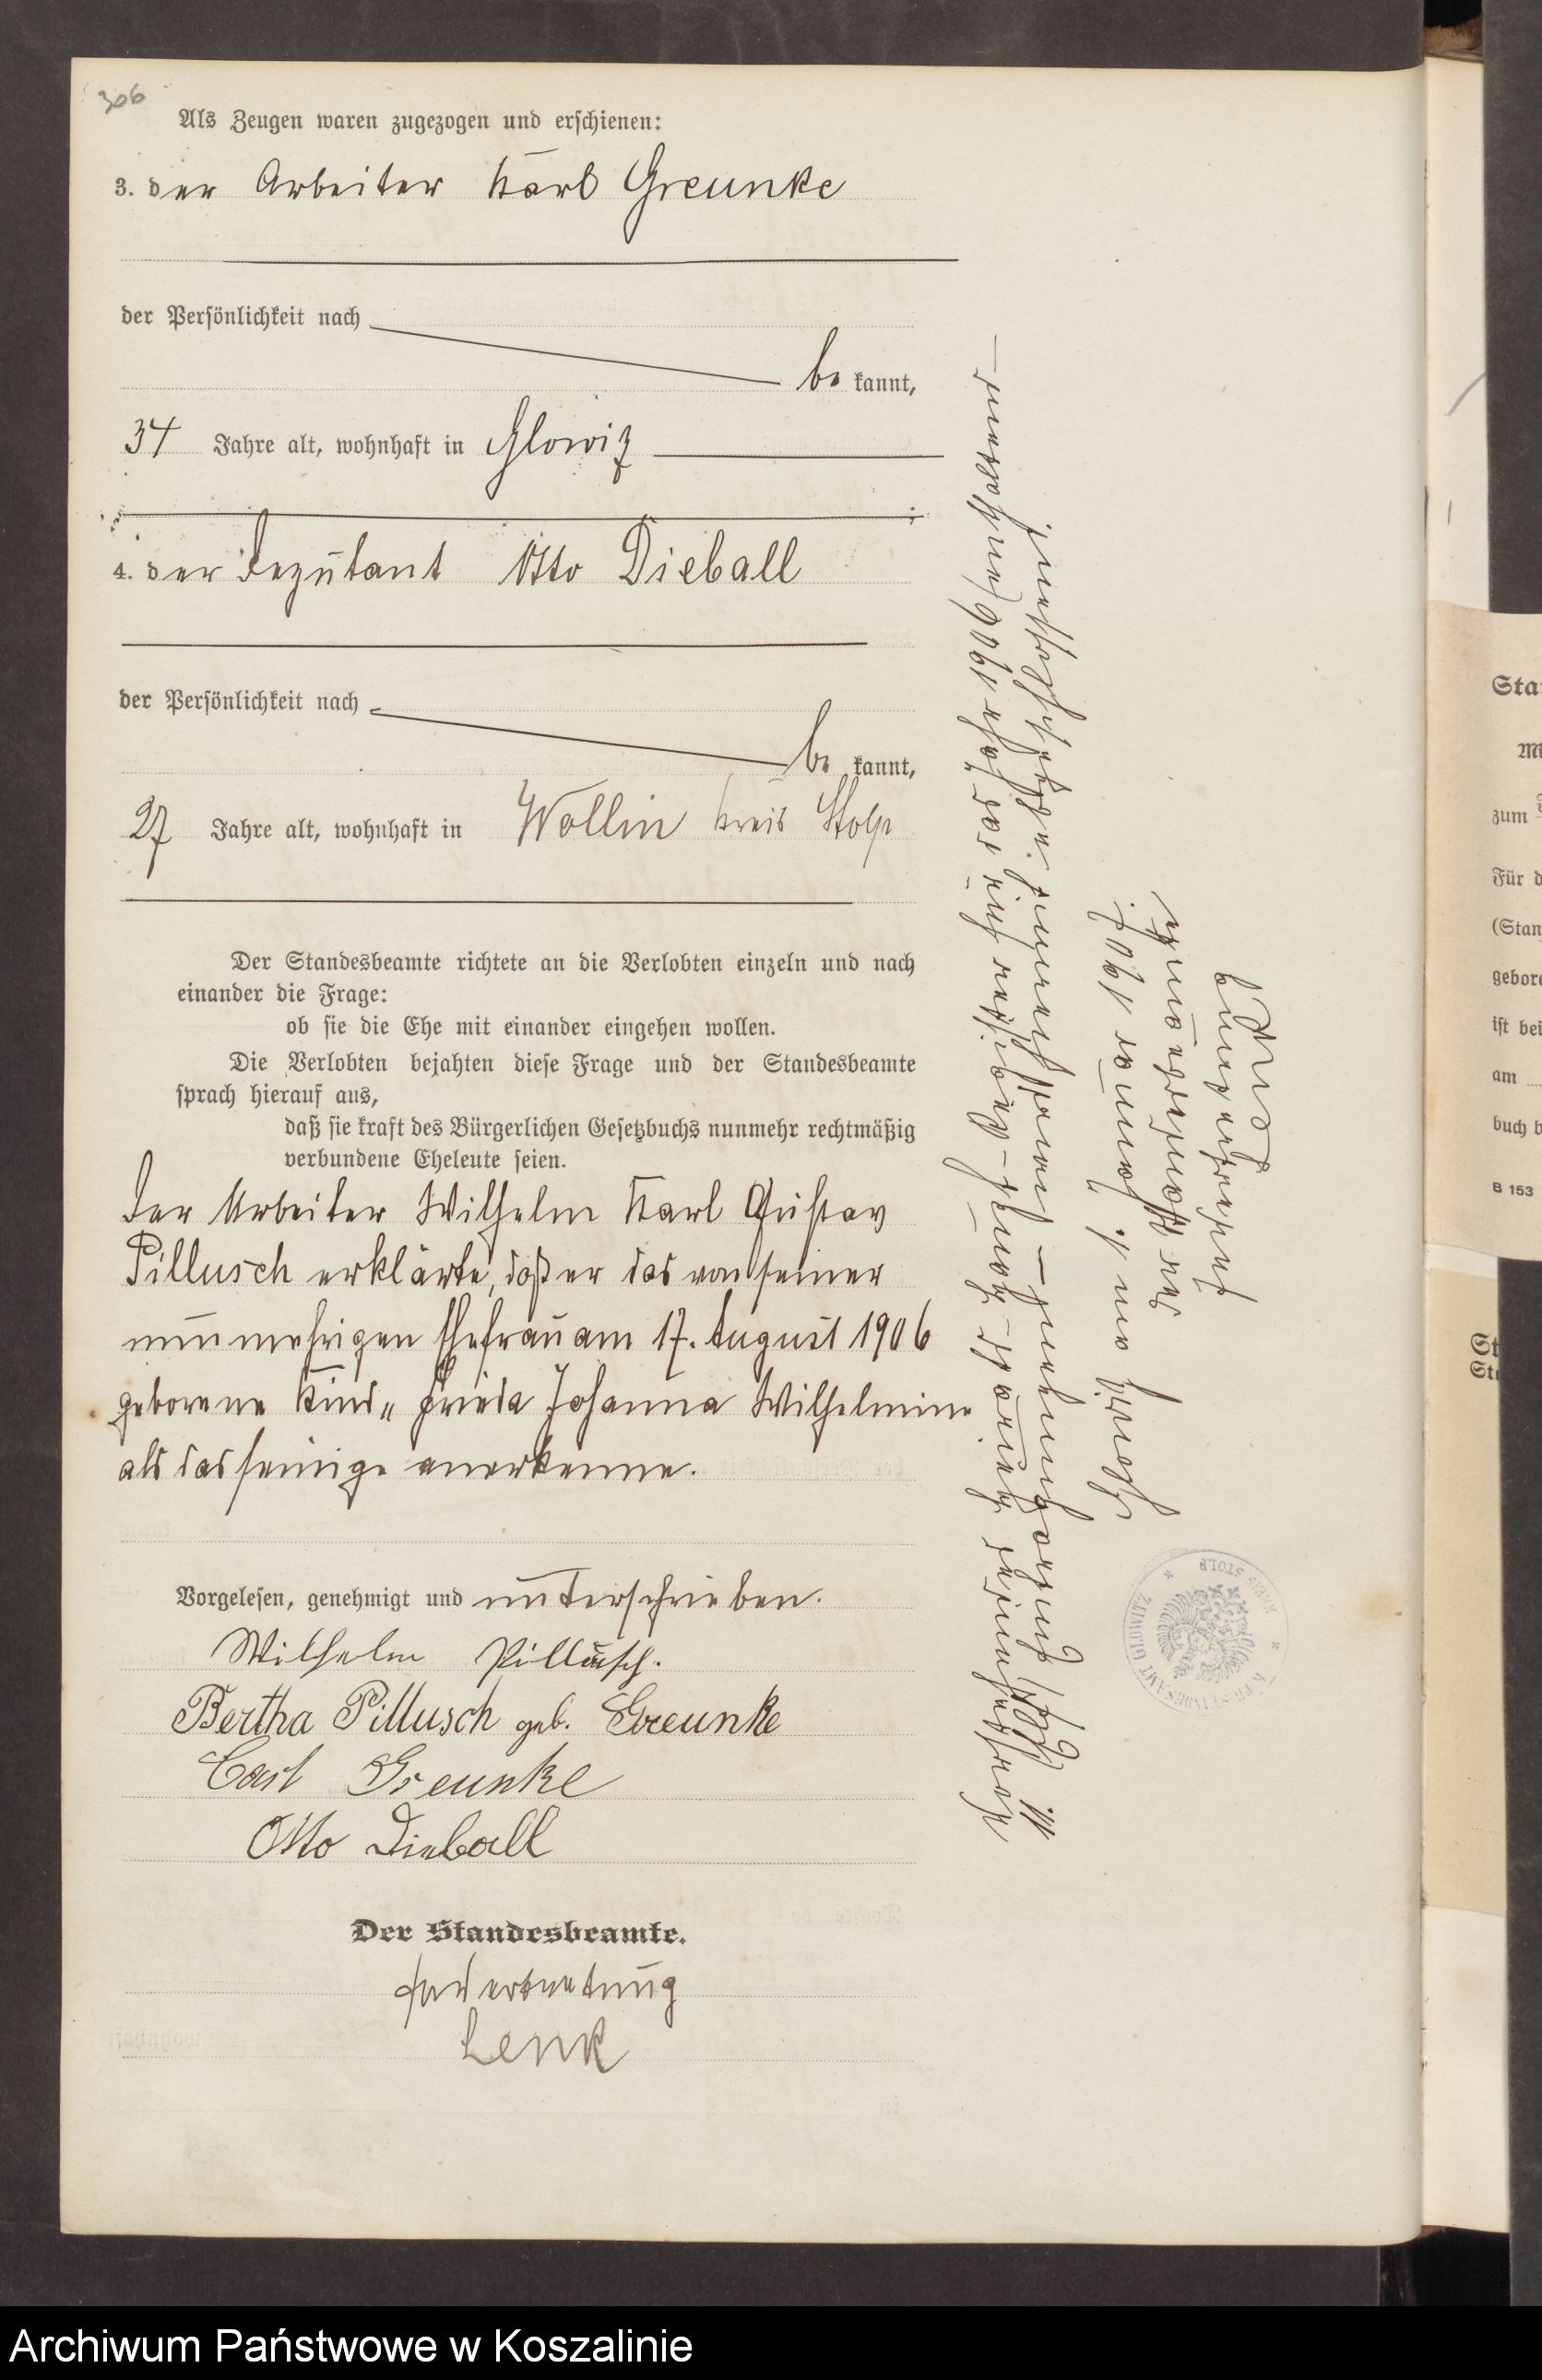 306
Als Zeugen waren zugezogen und erschienen:
3. der Arbeiter Karl Greunke
der Persönlichkeit nach
be kannt,
34 Jahre alt, wohnhaft in Glowitz
4. der Deputant Otto Dieball
der Persönlichkeit nach
be kannt,
27 Jahre alt, wohnhaft in Wollin Kreis Stolp
Der Standesbeamte richtete an die Verlobten einzeln und nach
einander die Frage:
ob sie die Ehe mit einander eingehen wollen.
Die Verlobten bejahten diese Frage und der Standesbeamte
sprach hierauf aus,
daß sie kraft des Bürgerlichen Gesetzbuchs nunmehr rechtmäßig
verbundene Eheleute seien.
Der Arbeiter Wilhelm Karl Gustav
Pillusch erklärte, daß er das von seiner
nunmehrigen Ehefrau am 17. August 1906
geborene Kind „ Frieda Johanna Wilhelmine
als das seinige anerkenne.
Vorgelesen, genehmigt und unterschrieben.
Wilhelm Pillusch.
Bertha Pillusch geb. Greunke
Carl Greunke
Otto Dieball
Der Standesbeamte.
In Vertretung
Lenk
Vorstehendes Heirats-Haupt-Register für das Jahr 1906
abgeschlossen.
Glowitz am 1. Januar 1907.
Der Standesbeamte
In Vertretung
Lenk
KREIS STOLP
Sta
zum
Für d
(Stan
gebore
ist bei
am
buch b
B 153
Archiwum Państwowe w Koszalinie